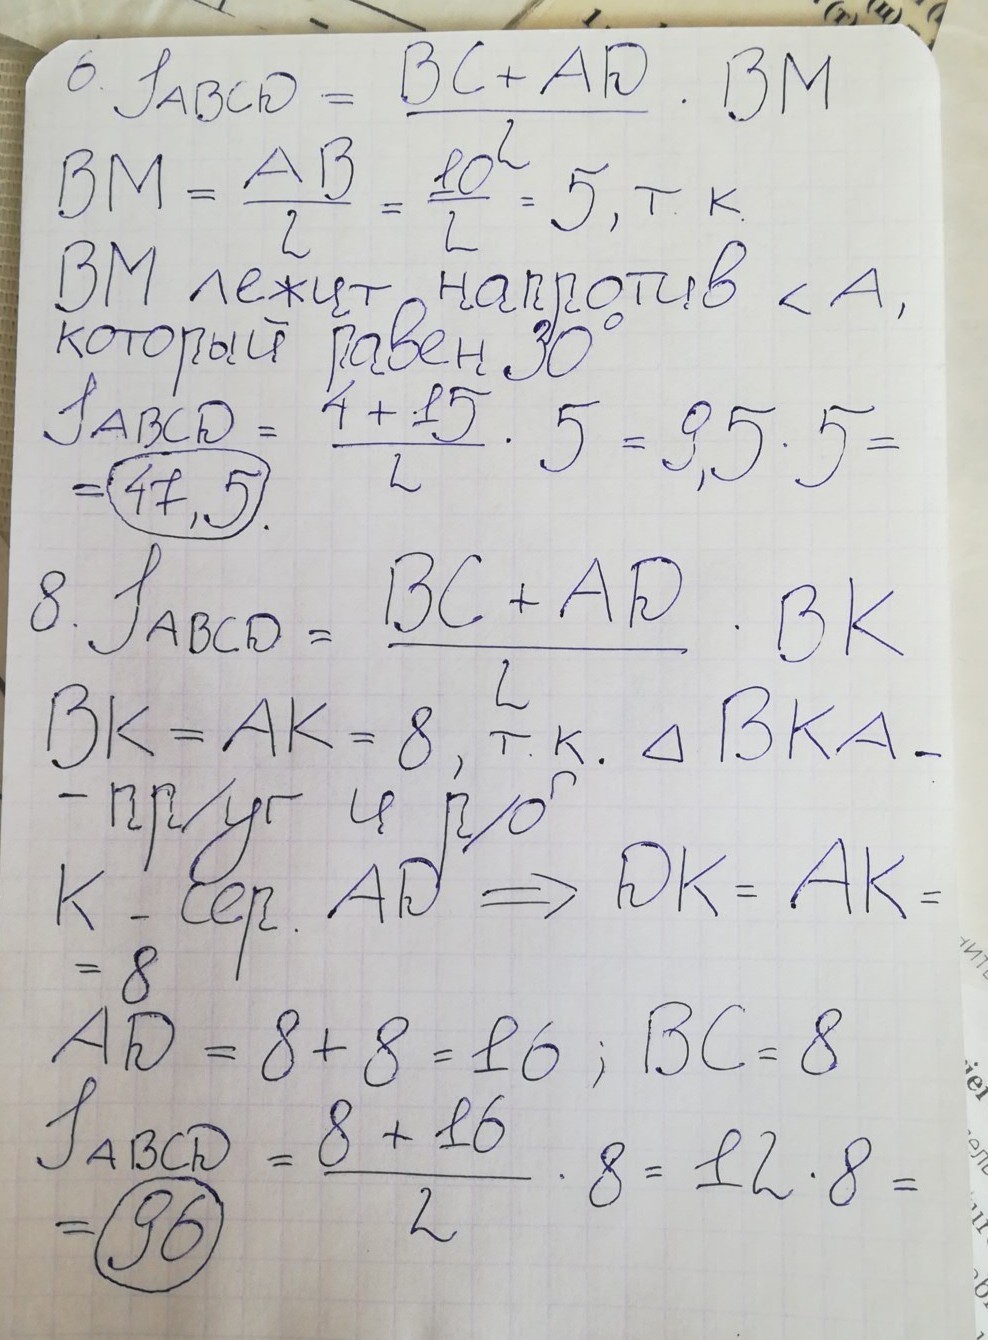 6. S_ABCD = (BC + AD)/2 · BM
BM = AB/2 = 10/2 = 5, т. к.
BM лежит напротив < A,
который равен 30°
S_ABCD = (4 + 15)/2 · 5 = 9,5 · 5 =
= 47,5.
8. S_ABCD = (BC + AD)/2 · BK
BK = AK = 8, т. к. △ BKA -
- пр/уг и р/б
K - сер. AD ⟹ DK = AK =
= 8
AD = 8 + 8 = 16 ; BC = 8
S_ABCD = (8 + 16)/2 · 8 = 12 · 8 =
= 96